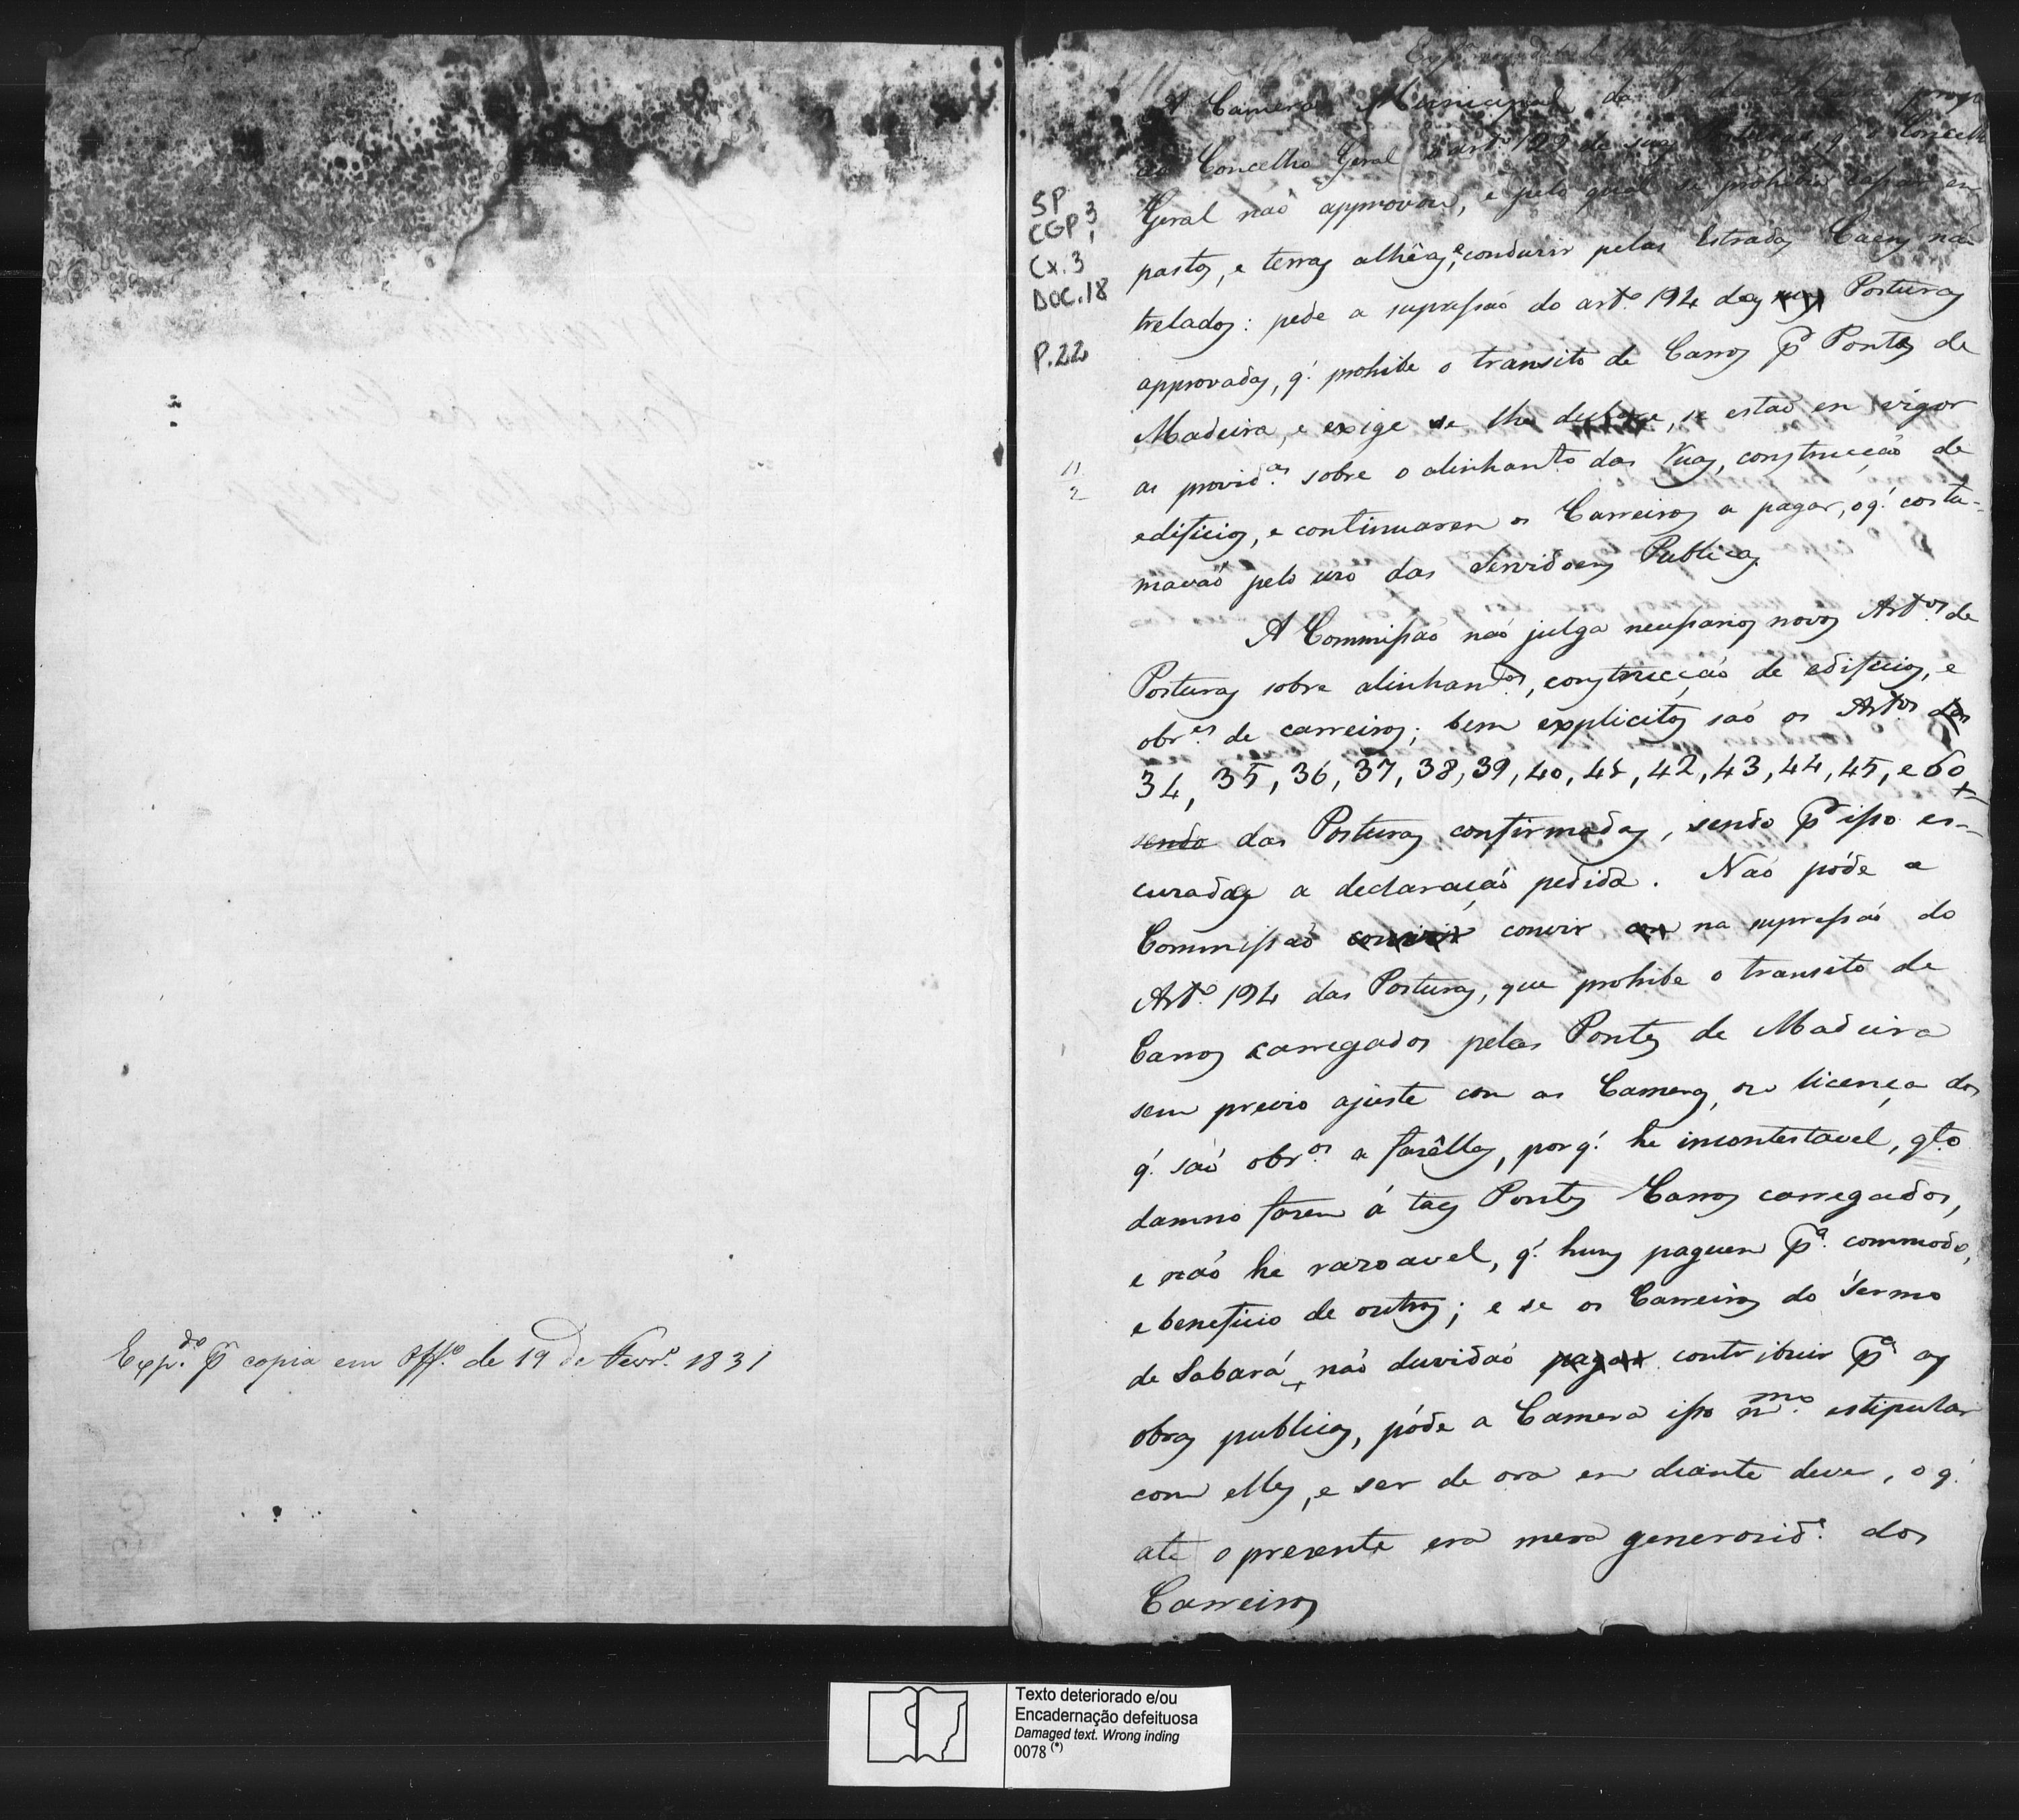 Exp.do pr copia em Off.o de 19 de Fevr.o 1831
SP
CGP 3
1
Cx. 3
DOC. 18
P. 22
11
2
A Camera Municipal da
ao Concelho Geral o art.o 129 de suas Posturas, q' o Concelho
Geral naõ approvou, e pelo qual se prohibia caçar em
pastos, e terras alhêas, e condusir pelas Estradas Caens naõ
trelados: pede a supressaõ do art.o 194 das Posturas
approvadas, q' prohibe o transito de Carros pr Pontes de
Madeira, e exige se lhe declare, se estaõ em vigor
as provid.as sobre o alinham.to das Ruas, construcçaõ de
edificios, e continuarem os Carreiros a pagar, o q' costu-
mavaõ pelo uso das Servidoens Publicas.
A Commissaõ naõ julga necessarios novos Art.os de
Posturas sobre alinham.tos, construcçaõ de edificios, e
obr.es de carreiros; bem explicitos saõ os Art.os das
34, 35, 36, 37, 38, 39, 40, 41, 42, 43, 44, 45, e 60
sendo das Posturas confirmadas, sendo pr isso es-
cusada a declaraçaõ pedida. Naõ póde a
Commissaõ convir na supressaõ do
Art.o 194 das Posturas, que prohibe o transito de
Carros carregados pelas Pontes de Madeira
sem previo ajuste com as Cameras, ou licença dos
q' saõ obr.os a fazêllas, porq' he incontestavel, q.to
damno fazem á taes Pontes Carros carregados,
e naõ he razoavel, q' huns paguem p.a commodo,
e beneficio de outros; e se os Carreiros do Termo
de Sabará naõ duvidaõ pagar contribuir p.a as
obras publicas, póde a Camera isso m.mo estipular
com elles, e ser de ora em diante dever, o q'
até o presente era mera generosid.e dos
Carreiros
Texto deteriorado e/ou
Encadernação defeituosa
Damaged text. Wrong inding
0078 (*)